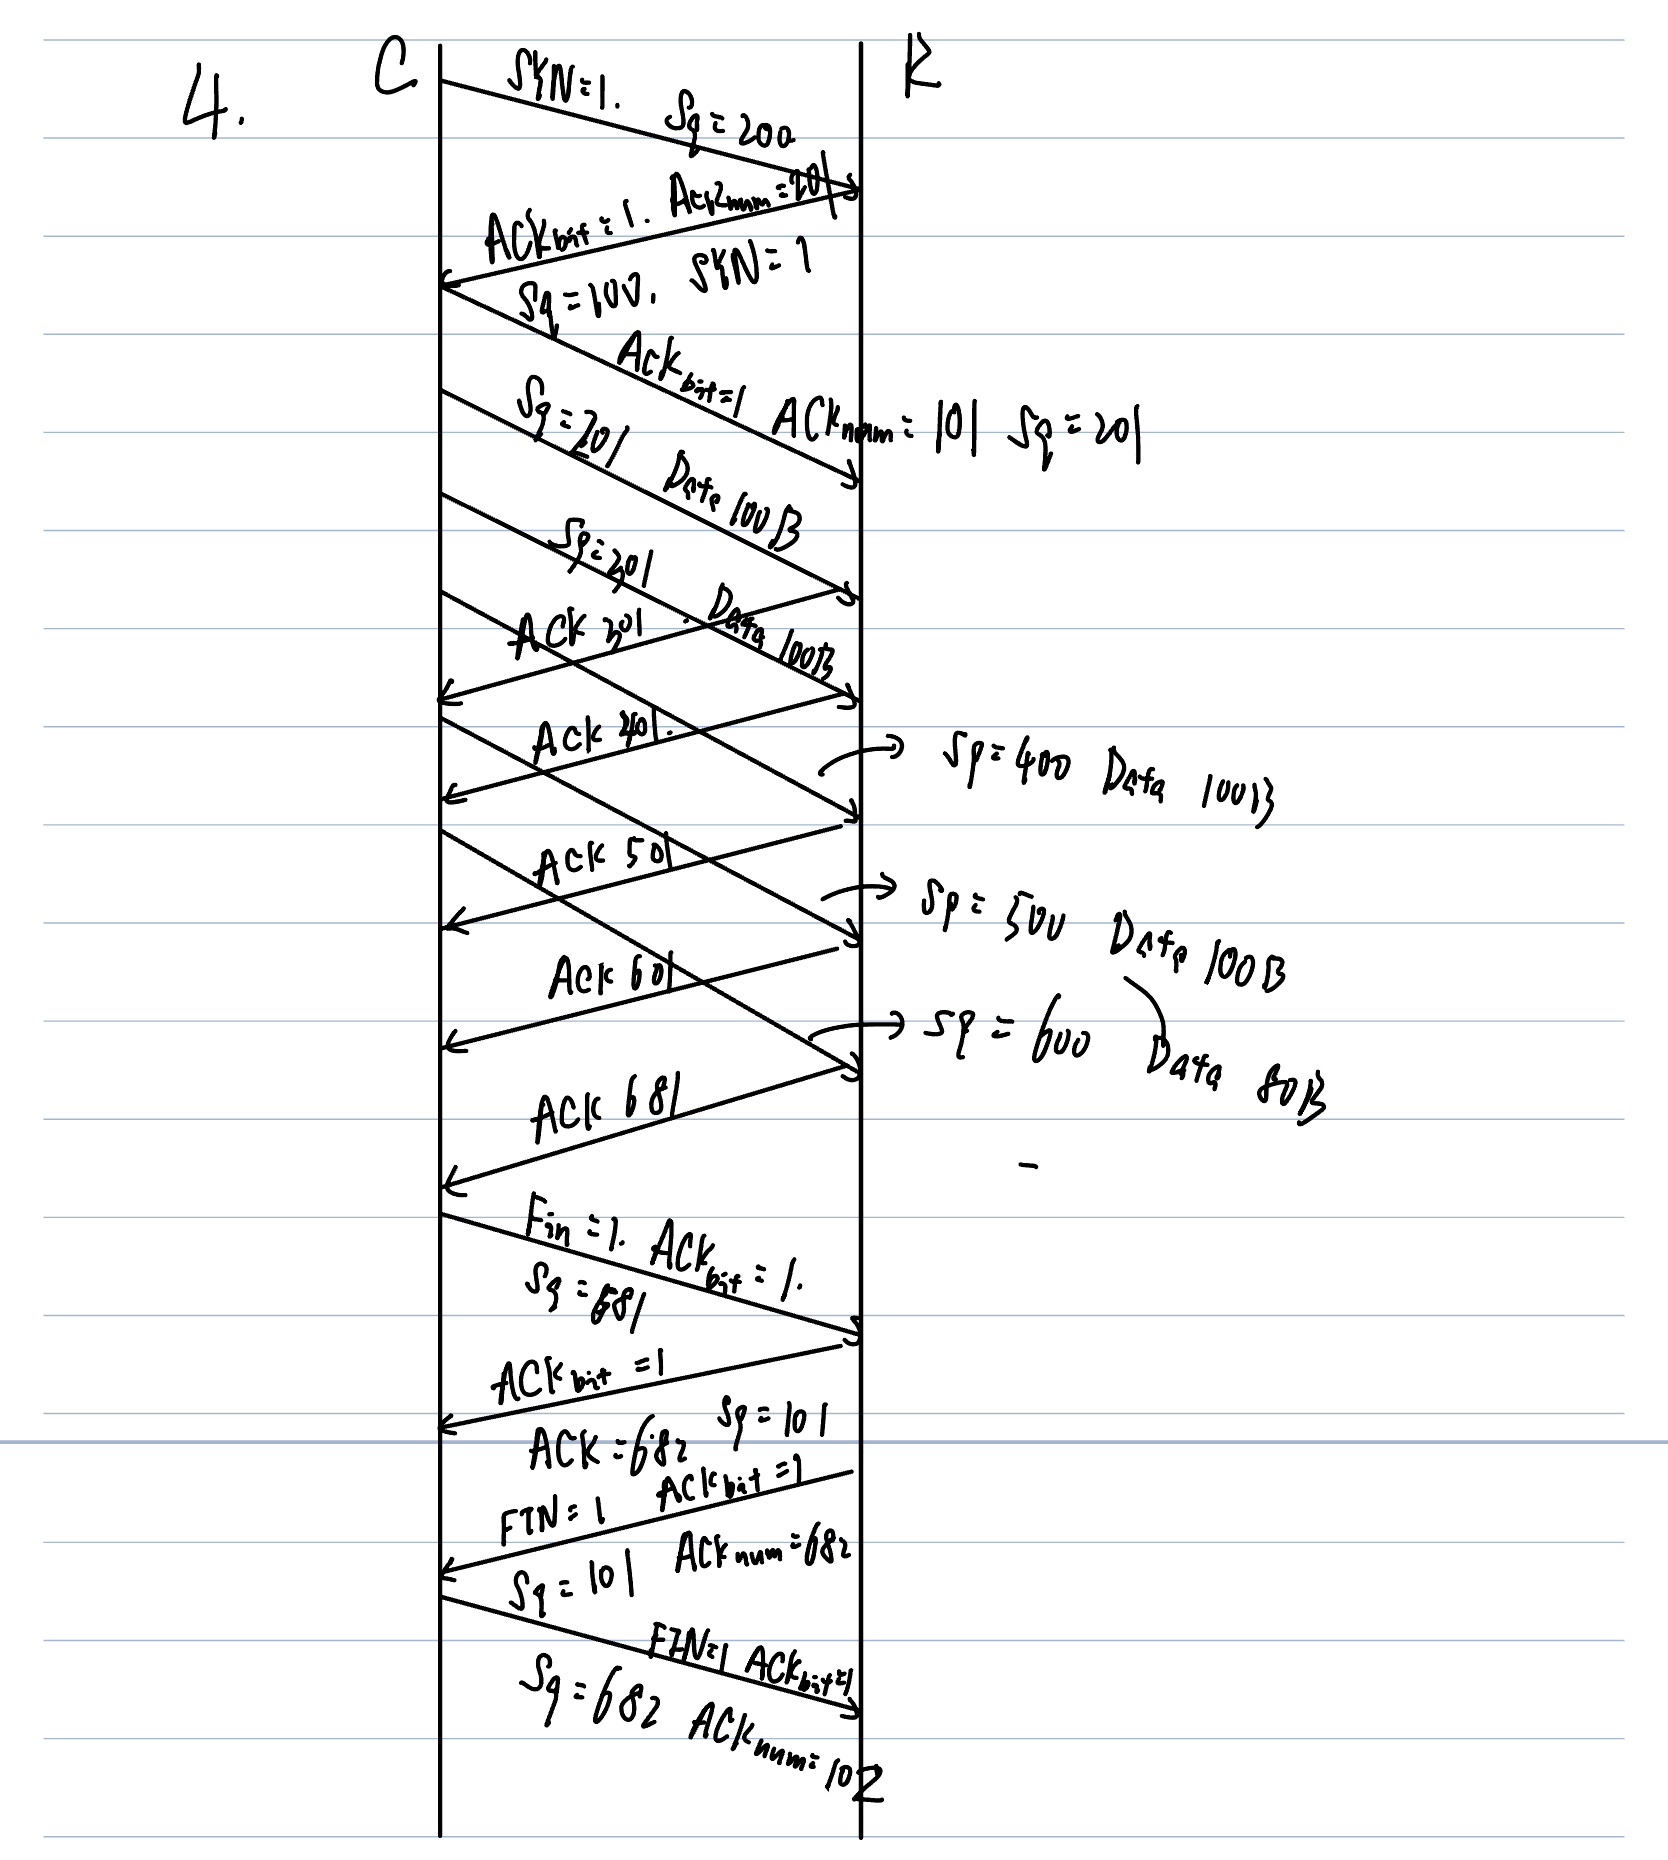 4.
C
R
SYN=1. Sq=200
ACKbit=1. ACKnum=201
Sq=100. SYN=1
ACKbit=1 ACKnum=101 Sq=201
Sq=201 Data 100B
Sq=301 Data 100B
ACK 301
ACK 401.
Sq=400 Data 100B
ACK 501
Sq=500 Data 100B
ACK 601
Sq=600 Data 80B
ACK 681
Fin=1. ACKbit=1.
Sq=681
ACKbit=1
ACK=682 Sq=101
FIN=1 ACKbit=1
Sq=101 ACKnum=682
FIN=1 ACKbit=1
Sq=682 ACKnum=102